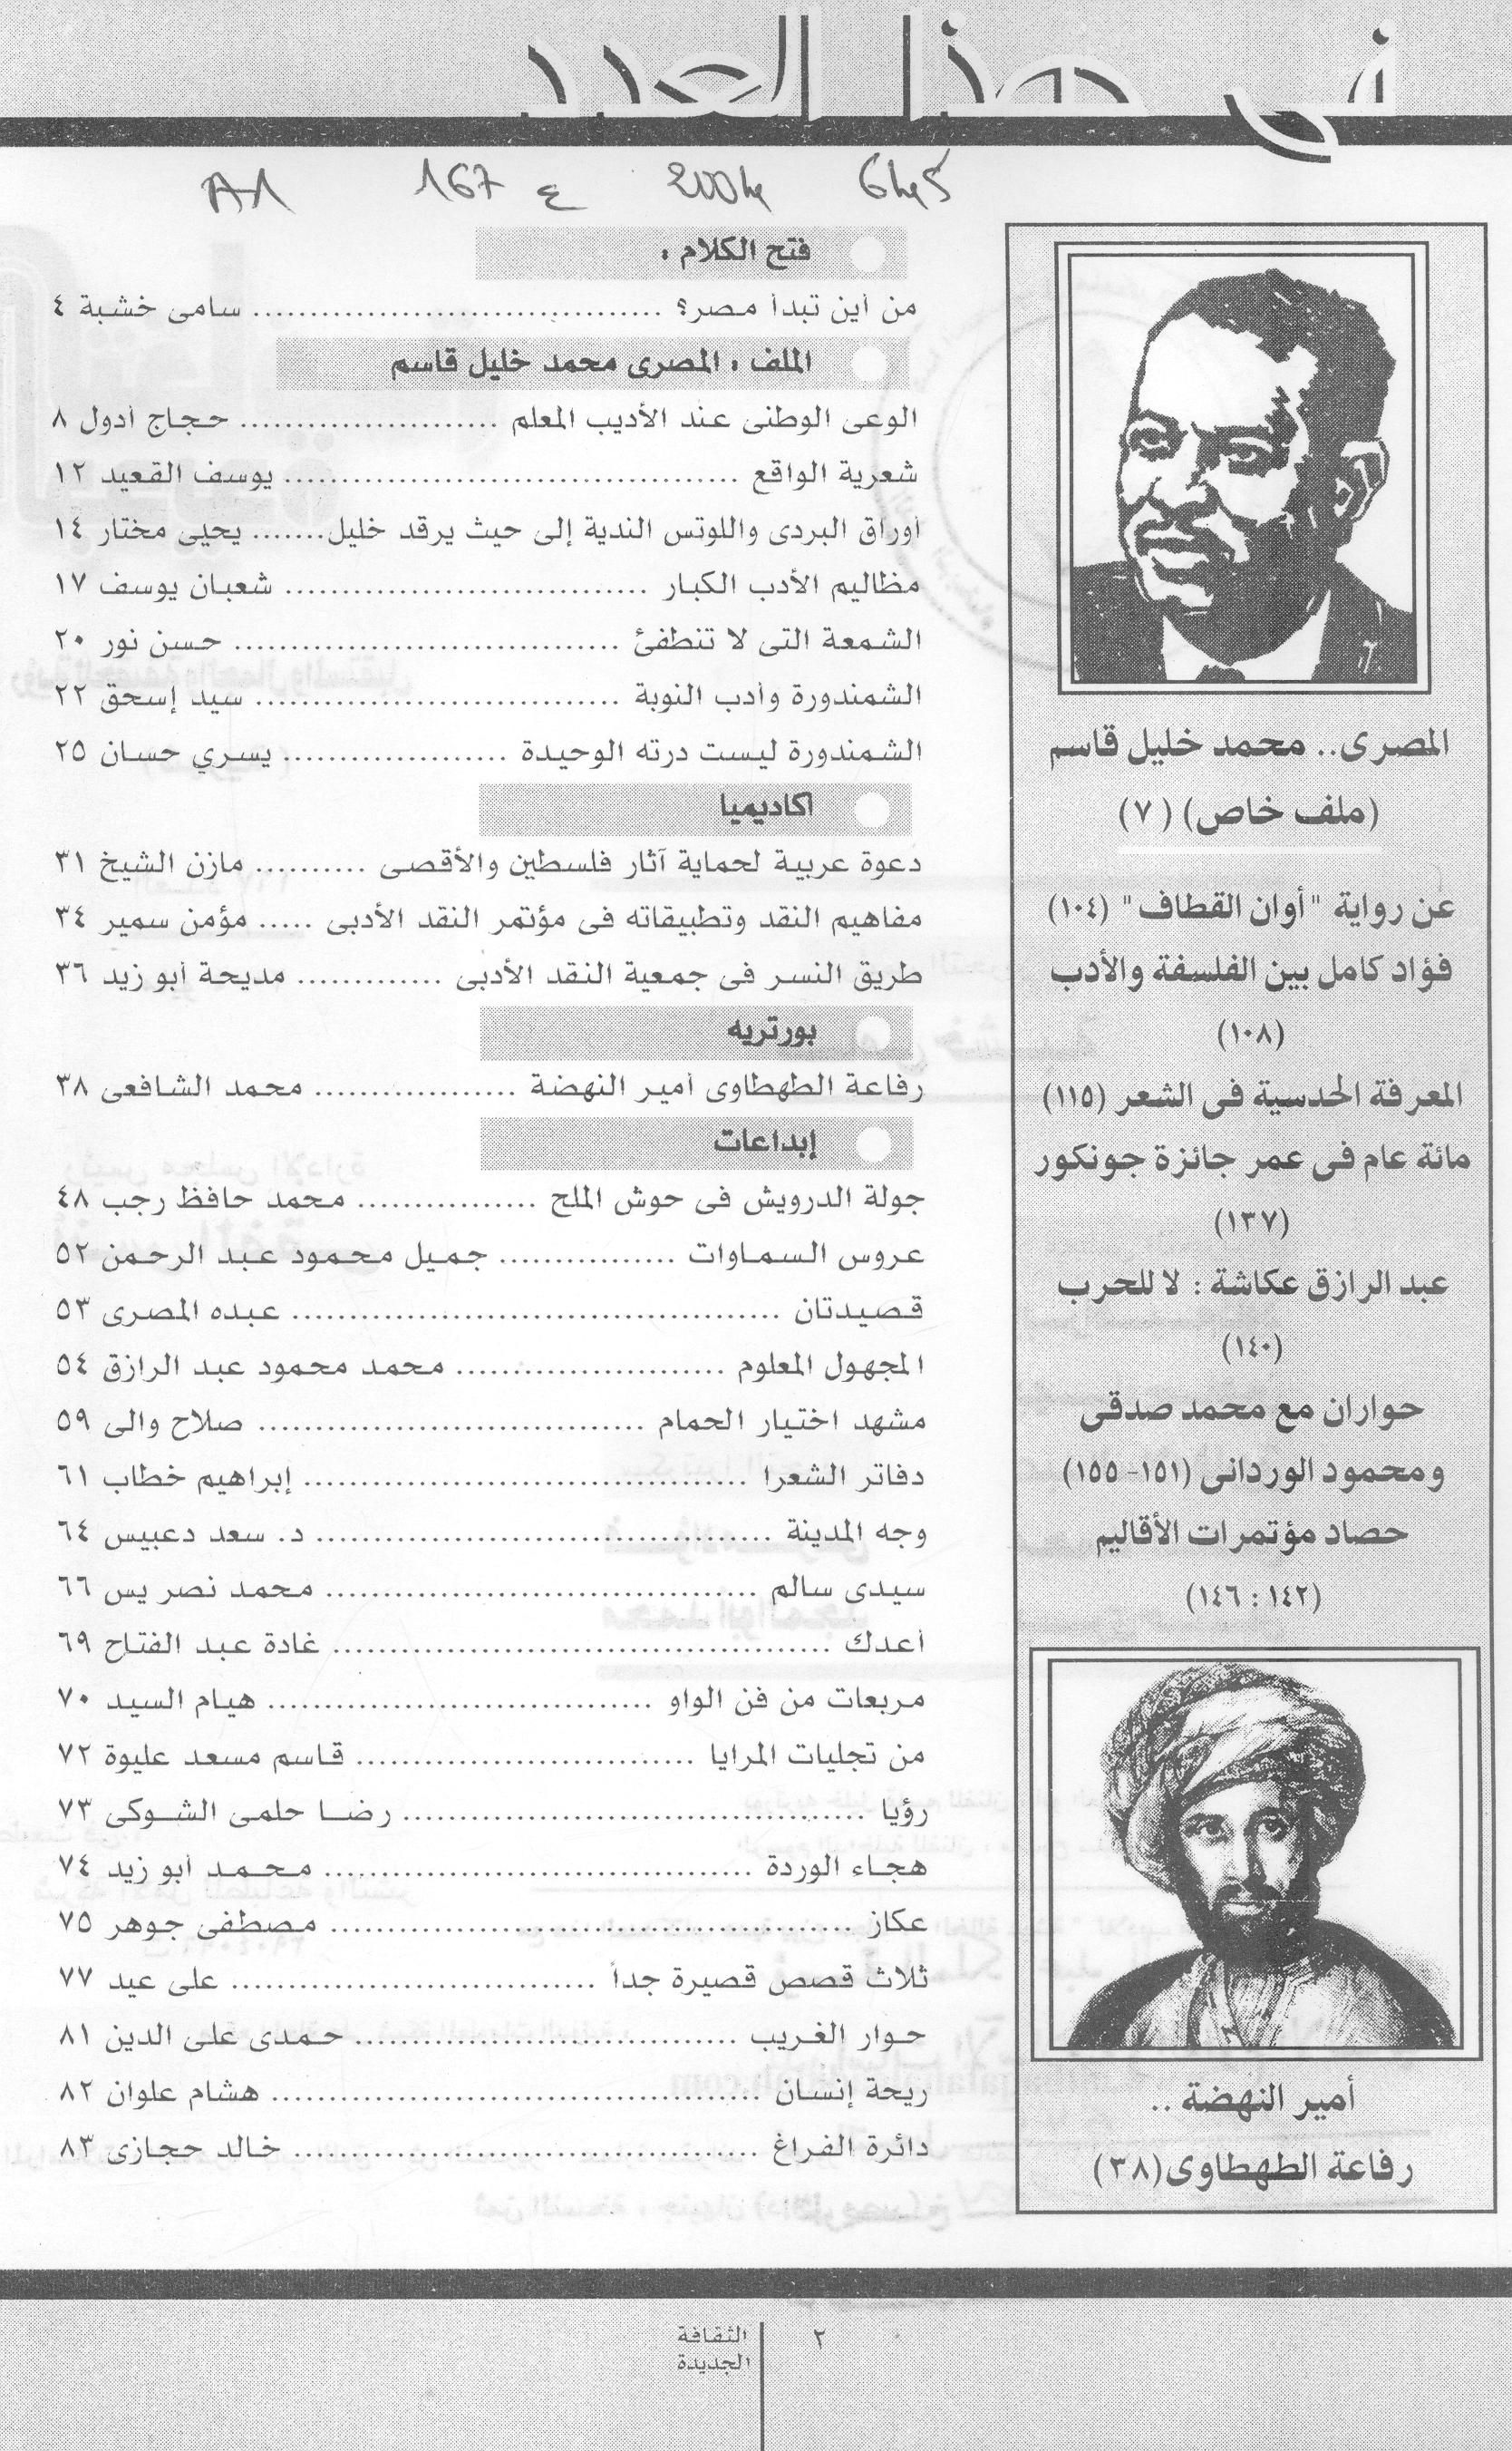 فى هذا العدد
A1 167 ع 2004 6145
المصرى.. محمد خليل قاسم
(ملف خاص) (٧)
عن رواية "أوان القطاف" (١٠٤)
فؤاد كامل بين الفلسفة والأدب
(١٠٨)
المعرفة الحدسية فى الشعر (١١٥)
مائة عام فى عمر جائزة جونكور
(١٣٧)
عبد الرازق عكاشة : لا للحرب
(١٤٠)
حواران مع محمد صدقى
ومحمود الوردانى (١٥١- ١٥٥)
حصاد مؤتمرات الأقاليم
(١٤٢ : ١٤٦)
أمير النهضة ..
رفاعة الطهطاوى (٣٨)
فتح الكلام :
من أين تبدأ مصر؟ .................................... سامى خشبة ٤
الملف : المصرى محمد خليل قاسم
الوعى الوطنى عند الأديب المعلم ....................... حجاج أدول ٨
شعرية الواقع ........................................ يوسف القعيد ١٢
أوراق البردى واللوتس الندية إلى حيث يرقد خليل....... يحيى مختار ١٤
مظاليم الأدب الكبار ................................ شعبان يوسف ١٧
الشمعة التى لا تنطفئ .................................. حسن نور ٢٠
الشمندورة وأدب النوبة ................................ سيد إسحق ٢٢
الشمندورة ليست درته الوحيدة .................... يسري حسان ٢٥
اكاديميا
دعوة عربية لحماية آثار فلسطين والأقصى .......... مازن الشيخ ٣١
مفاهيم النقد وتطبيقاته فى مؤتمر النقد الأدبى ..... مؤمن سمير ٣٤
طريق النسر فى جمعية النقد الأدبى ............. مديحة أبو زيد ٣٦
بورتريه
رفاعة الطهطاوى أمير النهضة .................. محمد الشافعى ٣٨
إبداعات
جولة الدرويش فى حوش الملح ................ محمد حافظ رجب ٤٨
عروس السماوات ................ جميل محمود عبد الرحمن ٥٢
قصيدتان ........................................... عبده المصرى ٥٣
المجهول المعلوم ........................ محمد محمود عبد الرازق ٥٤
مشهد اختيار الحمام .................................. صلاح والى ٥٩
دفاتر الشعرا ....................................... إبراهيم خطاب ٦١
وجه المدينة ........................................ د. سعد دعبيس ٦٤
سيدى سالم ...................................... محمد نصر يس ٦٦
أعدك ............................................ غادة عبد الفتاح ٦٩
مربعات من فن الواو .................................. هيام السيد ٧٠
من تجليات المرايا .............................. قاسم مسعد عليوة ٧٢
رؤيا ......................................... رضا حلمى الشوكى ٧٣
هجاء الوردة ...................................... محمد أبو زيد ٧٤
عكاز .............................................. مصطفى جوهر ٧٥
ثلاث قصص قصيرة جداً ................................ على عيد ٧٧
حوار الغريب .................................. حمدى على الدين ٨١
ريحة إنسان ........................................... هشام علوان ٨٢
دائرة الفراغ ......................................... خالد حجازى ٨٣
٢
الثقافة
الجديدة